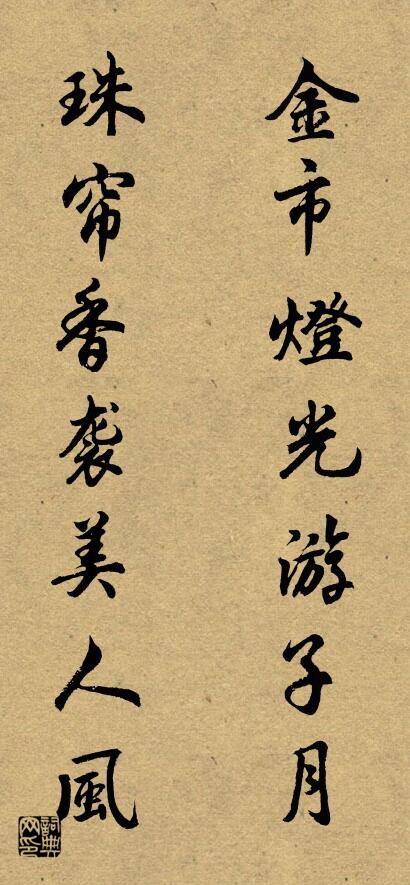 金市燈光游子月
珠帘香袭美人風
詞典网印